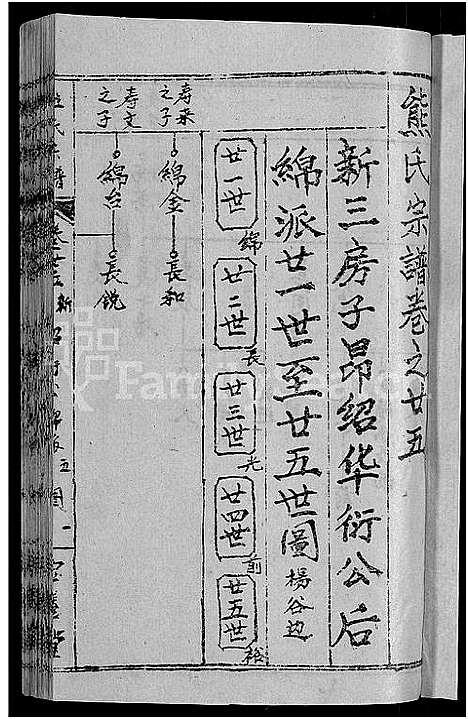 熊氏宗譜卷之廿五
新三房子昂绍华衍公后
綿派廿一世至廿五世圖 楊谷边
廿一世 綿
廿二世 長
廿三世 光
廿四世 前
廿五世 裕
寿来之子
綿金 長和
寿文之子
綿台 長銳
FamilySearch